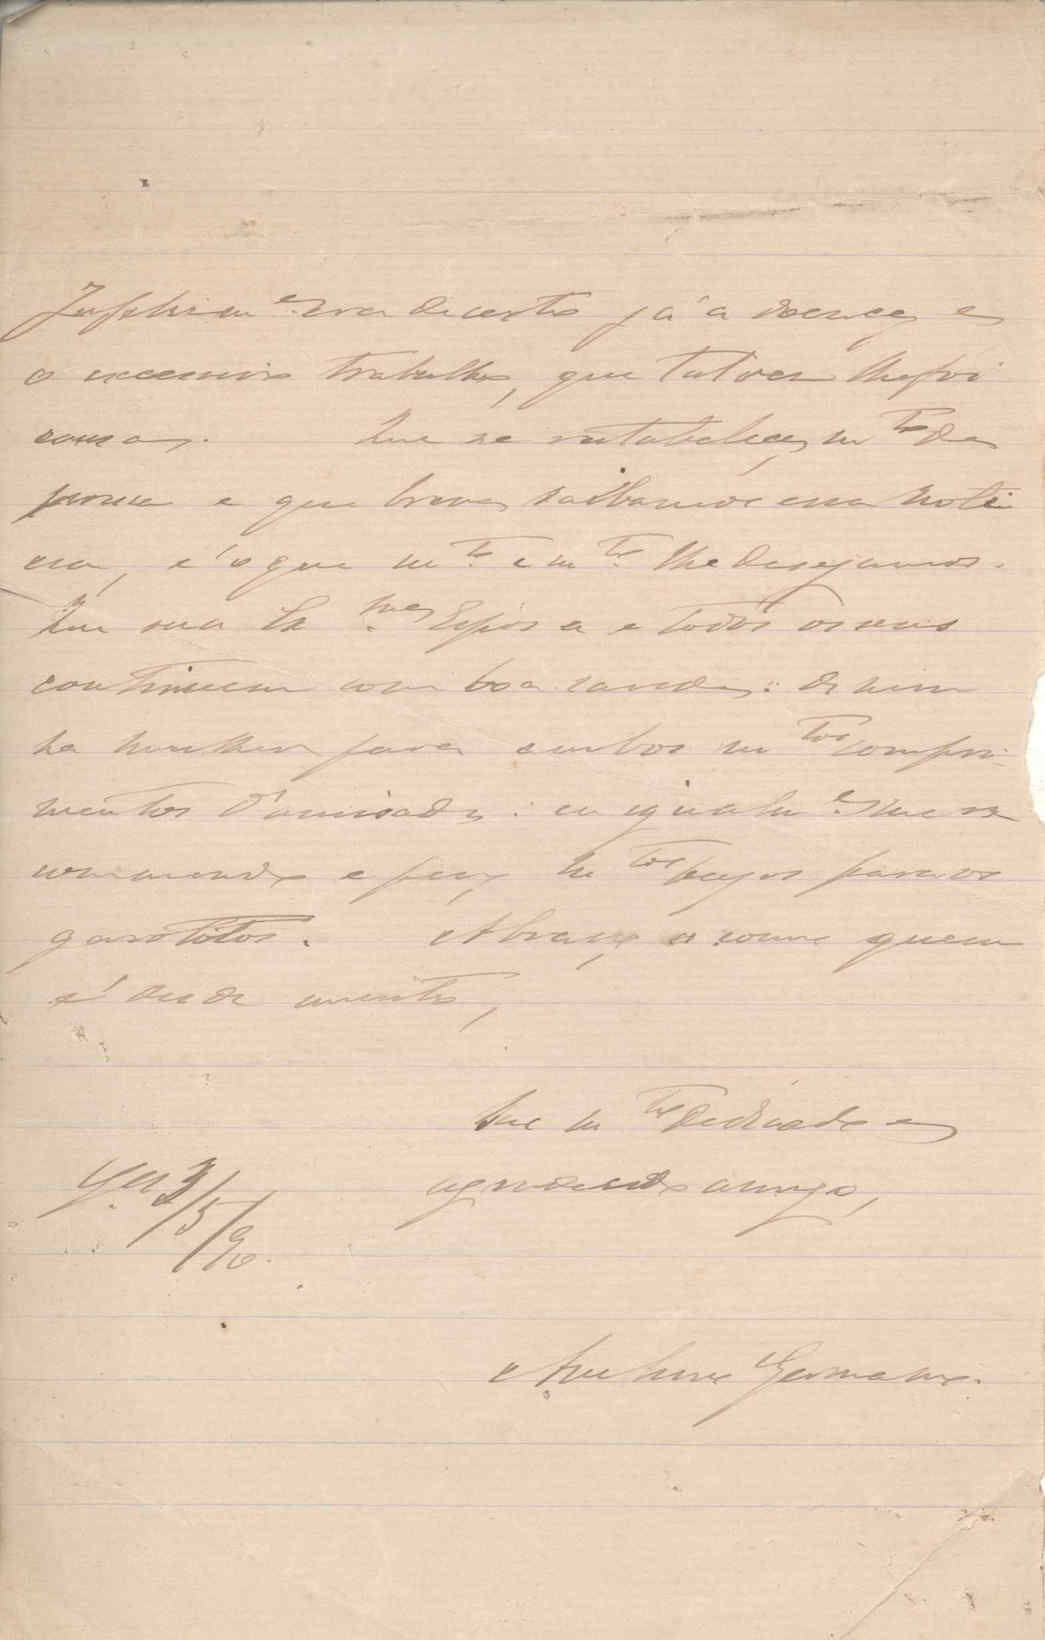 já a doença e
o excessivo trabalho, que talvez lhe foi
causa. Que se restabeleça m.to de
pressa e que breve saibamos essa noti
cia, é o que m.to e m.to lhe desejamos.
Que sua Ex.ma Esposa e todos os seus
continuem com boa saude: de min
ha mulher para ambos m.tos compri-
mentos d'amisade: eu igualm.e me re
commendo e peço m.tos beijos para os
garotitos. Abraça-o como quem
é desde muito,
Seu m.to dedicado e
agradecido amigo,
3/5/90.
Germano.